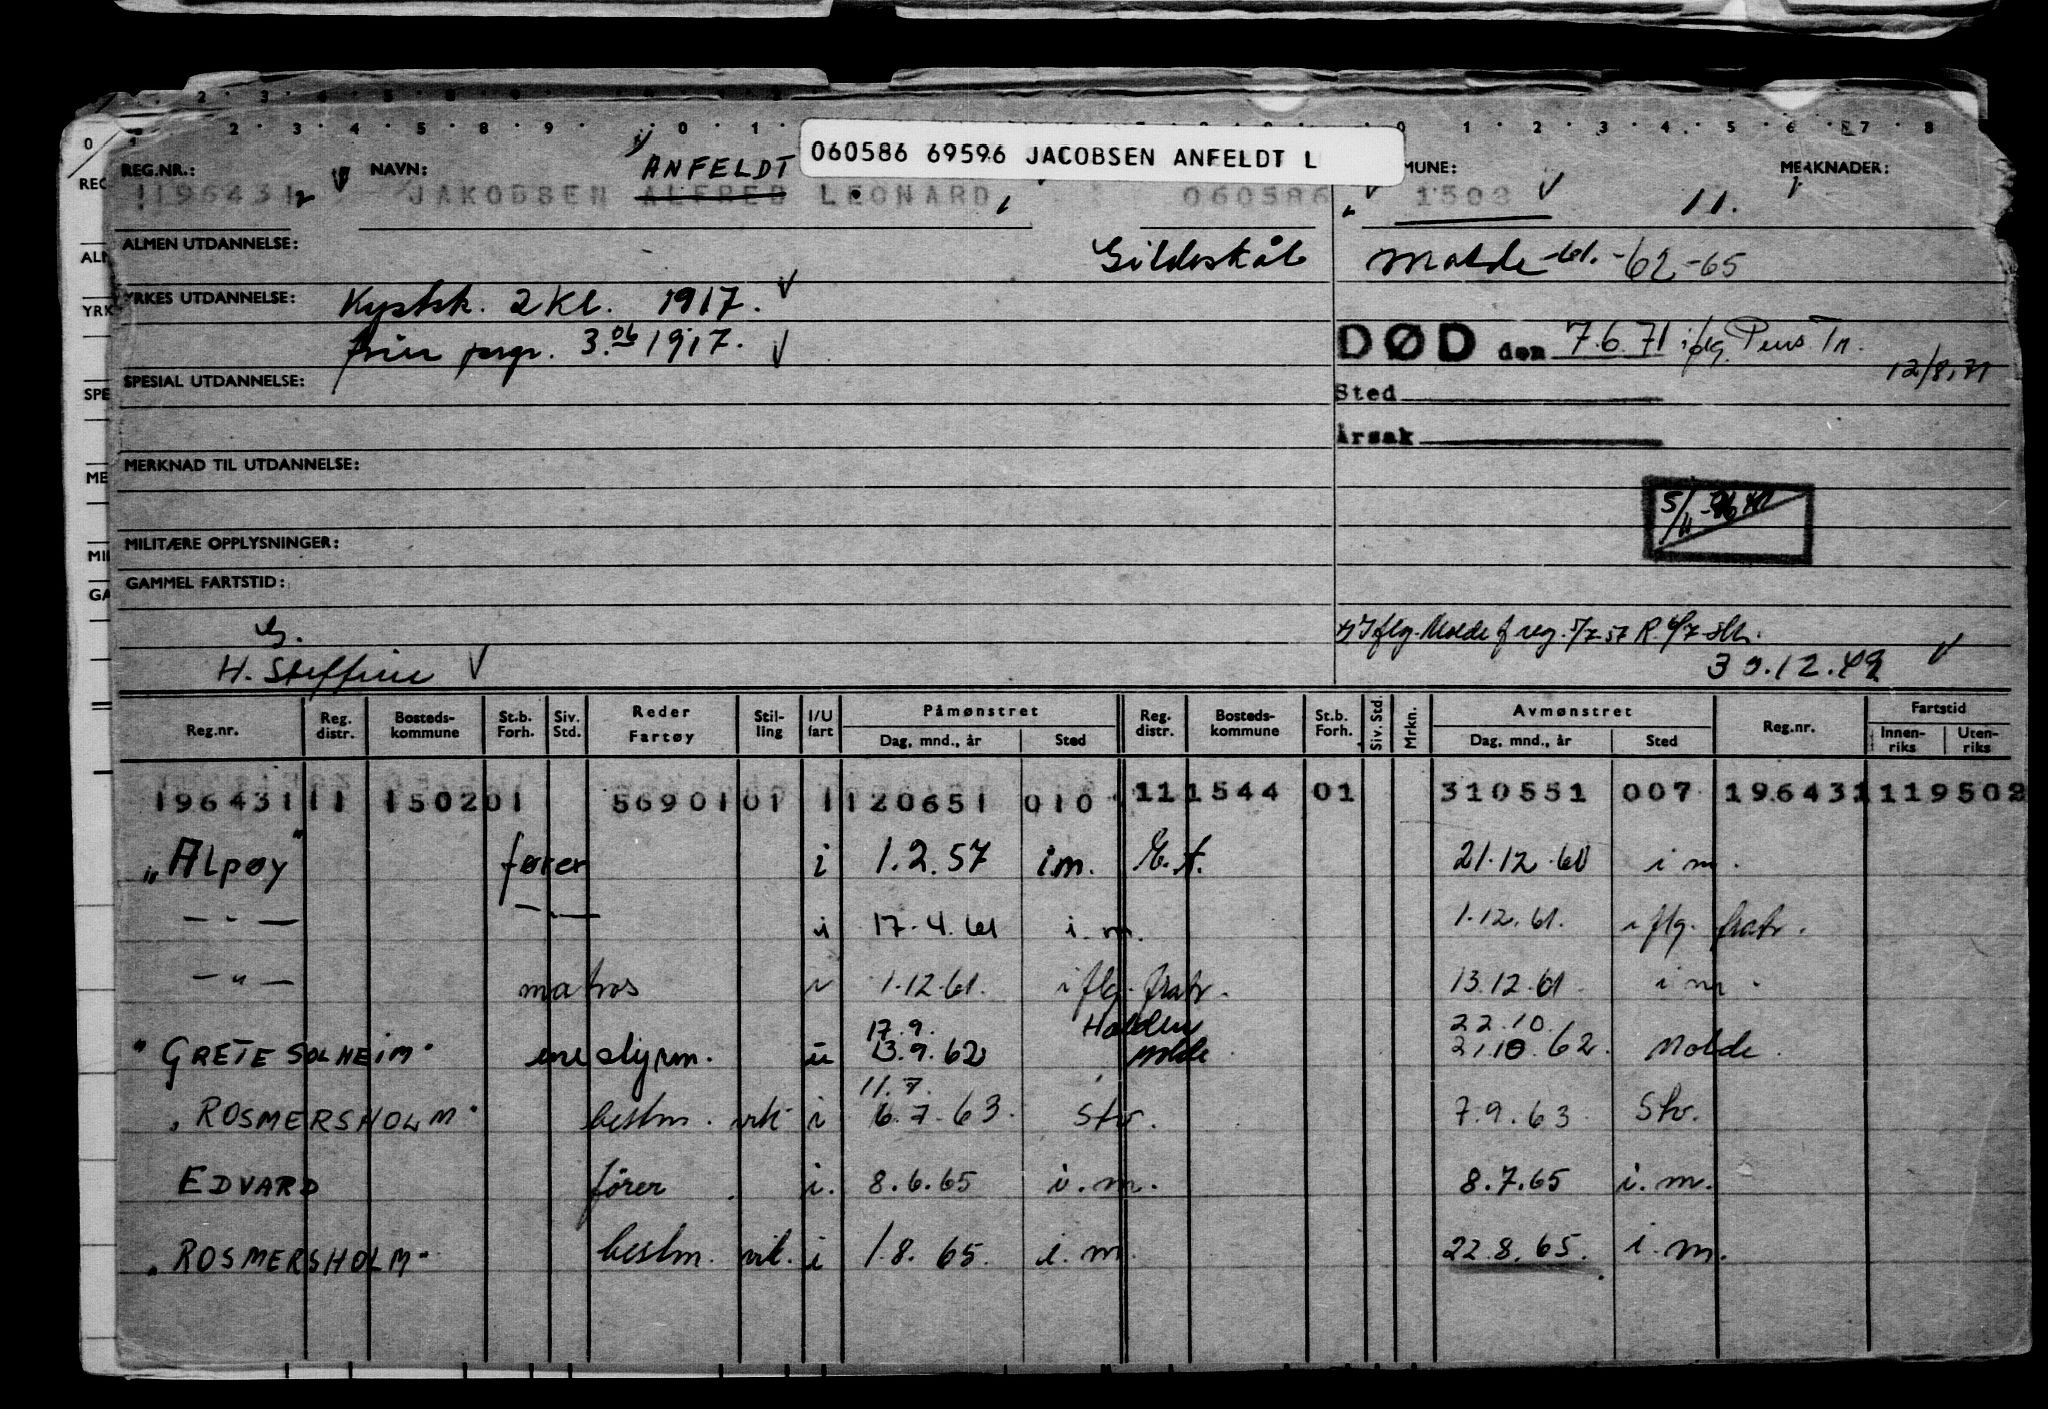 060586 69596 JACOBSEN ANFELDT L
REG.NR.: NAVN: ANFELDT MUNE: MERKNADER:
196431 JAKOBSEN ALFRED LEONARD 060586 1502 11.
ALMEN UTDANNELSE: Gildeskål Molde -61.-62-65
YRKES UTDANNELSE: Kystsk. 2 kl. 1917.
3. 1917. DØD den 7.6.71 iflg. Pens Tr. 12/8.71
SPESIAL UTDANNELSE:
Sted
Årsak
MERKNAD TIL UTDANNELSE:
MILITÆRE OPPLYSNINGER:
GAMMEL FARTSTID:
G. Iflg. Molde
H. Steffine 30.12.49
Reg.nr. Reg. distr. Bosteds-kommune St.b. Forh. Siv. Std. Reder Fartøy Stil-ling I/U fart Påmønstret Dag, mnd., år Sted Reg. distr. Bosteds-kommune St.b. Forh. Siv. Std. Mrkn. Avmønstret Dag, mnd., år Sted Reg.nr. Fartstid Innen-riks Uten-riks
196431 11 1502 01 56901 01 1 120651 010 11 1544 01 310551 007 196431 119502
"ALPØY" fører i 1.2.57 i.m. 21.12.60 i m.
— " — — " — i 17.4.61 i.m. 1.12.61. iflg. fratr.
— " — matros i 1.12.61. iflg. fratr. 13.12.61 i m.
17.9. Halden 22.10.
"GRETE SOLHEIM" ene styrm. u 13.9.62 Molde 21.10.62. Molde
11.7.
"ROSMERSHOLM" bestm. vik i 6.7.63. Stv. 7.9.63 Stv.
EDVARD fører i. 8.6.65 i.m. 8.7.65 i.m.
"ROSMERSHOLM" bestm. vik. i 1.8.65. i.m. 22.8.65. i.m.